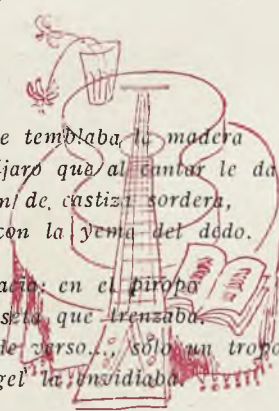 e temblaba, la madera
jaro que al cantar le da
n de castiza sordera,
con la yema del dedo.
acia: en el piropo
seta que trenzaba.
de verso..., sólo un tropo
gel la envidiaba.